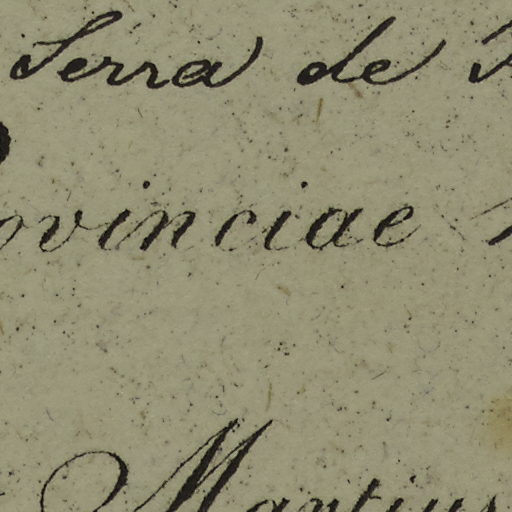 Serra de
ovinciae
Martius